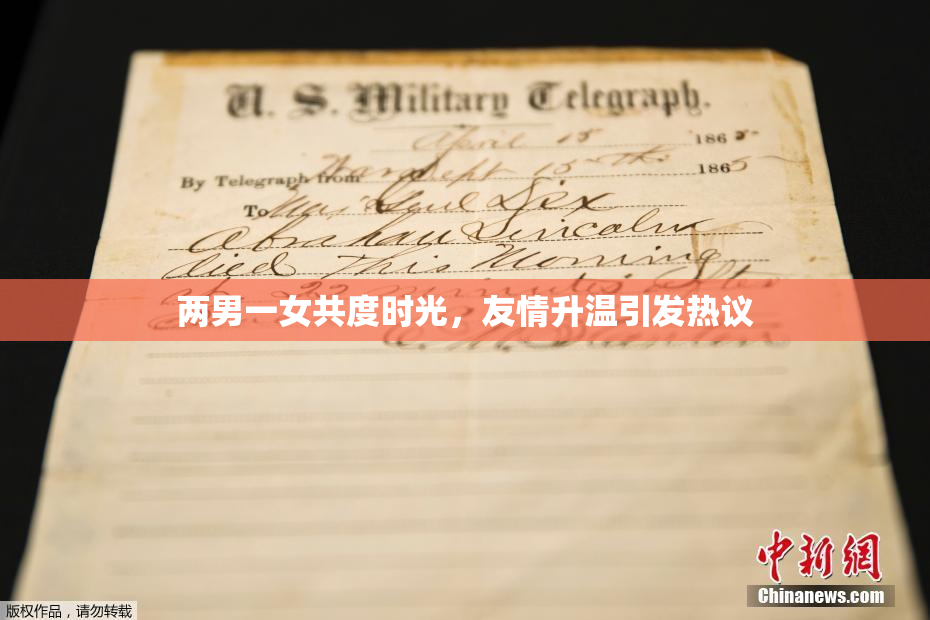 U. S. Military Telegraph.
April 15 1865.
By Telegraph from War Dept 15th 1865
To Maj Genl Dix
Abraham Lincoln
died This Morning
at 22 minutes after
两男一女共度时光，友情升温引发热议
E. M. Stanton
中新网
Chinanews.com
版权作品，请勿转载